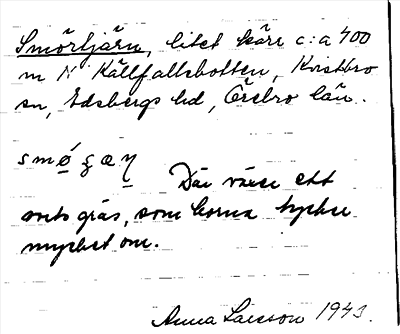 Smörtjärn, litet kärr c:a 400
m N Källfallsbotten, Kvistbro
sn, Edsbergs hd, Örebro län.
Där växer ett
sorts gräs, som korna tycker
mycket om.
Anna Larsson 1943.